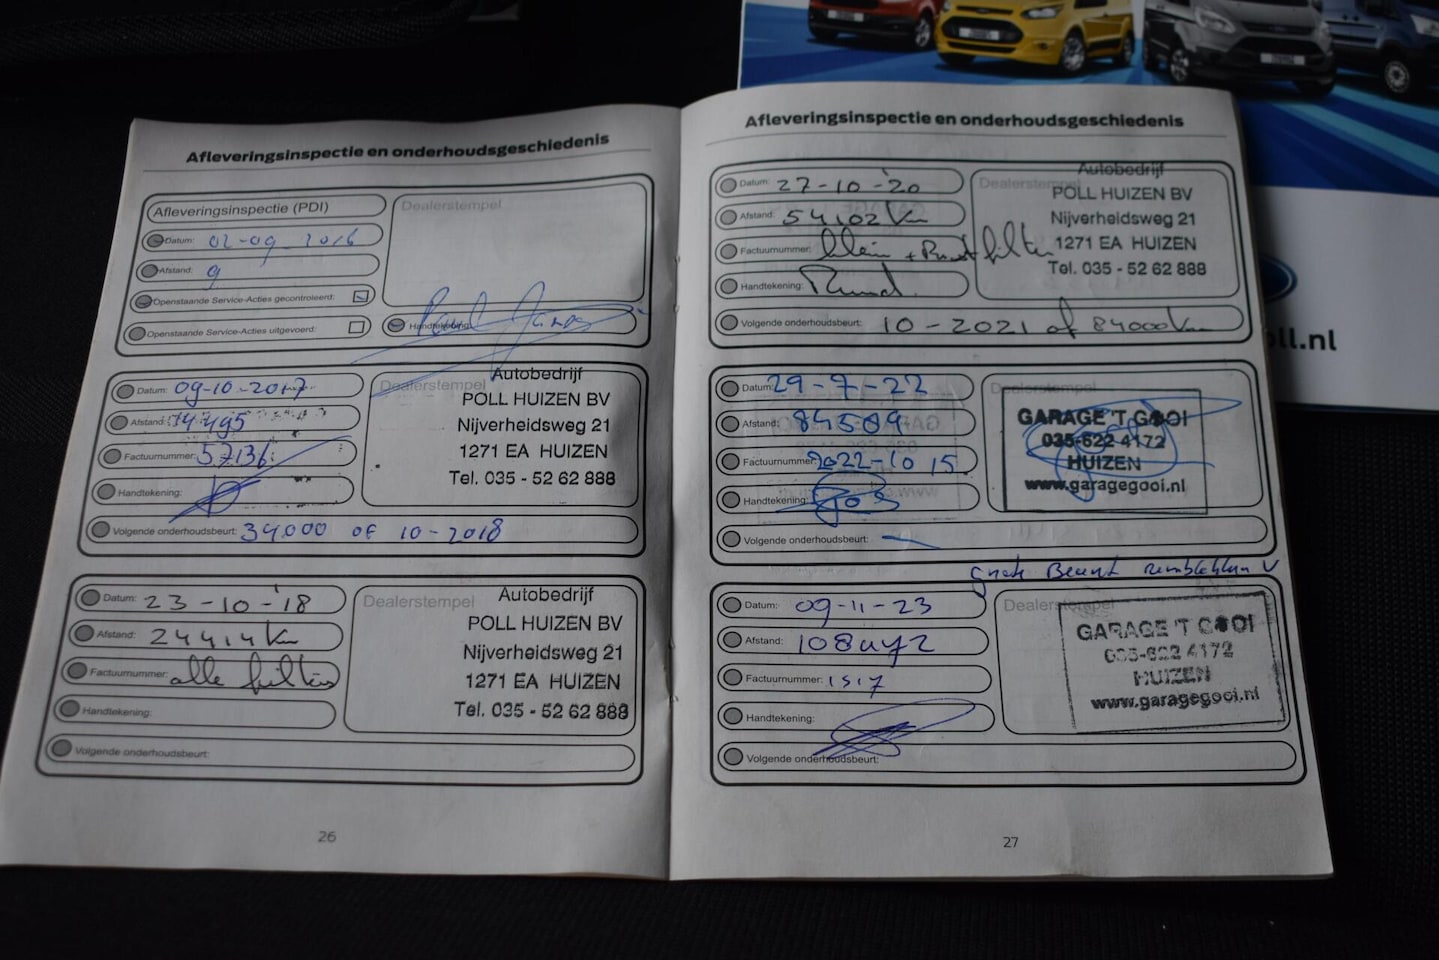 Afleveringsinspectie en onderhoudsgeschiedenis
Afleveringsinspectie (PDI)
Dealerstempel
Datum: 02-09-2016
Afstand: 9
Openstaande Service-Acties gecontroleerd:
Openstaande Service-Acties uitgevoerd:
Handtekening:
Datum: 09-10-2017
Afstand: 14495
Factuurnummer: 57136
Handtekening:
Volgende onderhoudsbeurt: 34.000 OF 10-2018
Dealerstempel
Autobedrijf
POLL HUIZEN BV
Nijverheidsweg 21
1271 EA HUIZEN
Tel. 035 - 52 62 888
Datum: 23-10-'18
Afstand: 24414 Km
Factuurnummer: alle filters
Handtekening:
Volgende onderhoudsbeurt:
Dealerstempel
Autobedrijf
POLL HUIZEN BV
Nijverheidsweg 21
1271 EA HUIZEN
Tel. 035 - 52 62 888
26
Afleveringsinspectie en onderhoudsgeschiedenis
Datum: 27-10-'20
Afstand: 54102 Km
Factuurnummer: klein +
Handtekening:
Volgende onderhoudsbeurt: 10-2021 of 84000 Km
Dealerstempel
Autobedrijf
POLL HUIZEN BV
Nijverheidsweg 21
1271 EA HUIZEN
Tel. 035 - 52 62 888
Datum: 29-7-22
Afstand: 84589
Factuurnummer: 2022-1015
Handtekening:
Volgende onderhoudsbeurt: —
Dealerstempel
GARAGE 'T GOOI
035-622 4172
HUIZEN
www.garagegooi.nl
Grote Beurt
Datum: 09-11-23
Afstand:
Factuurnummer: 1517
Handtekening:
Volgende onderhoudsbeurt:
Dealerstempel
GARAGE 'T GOOI
035-622 4172
HUIZEN
www.garagegooi.nl
27
oll.nl